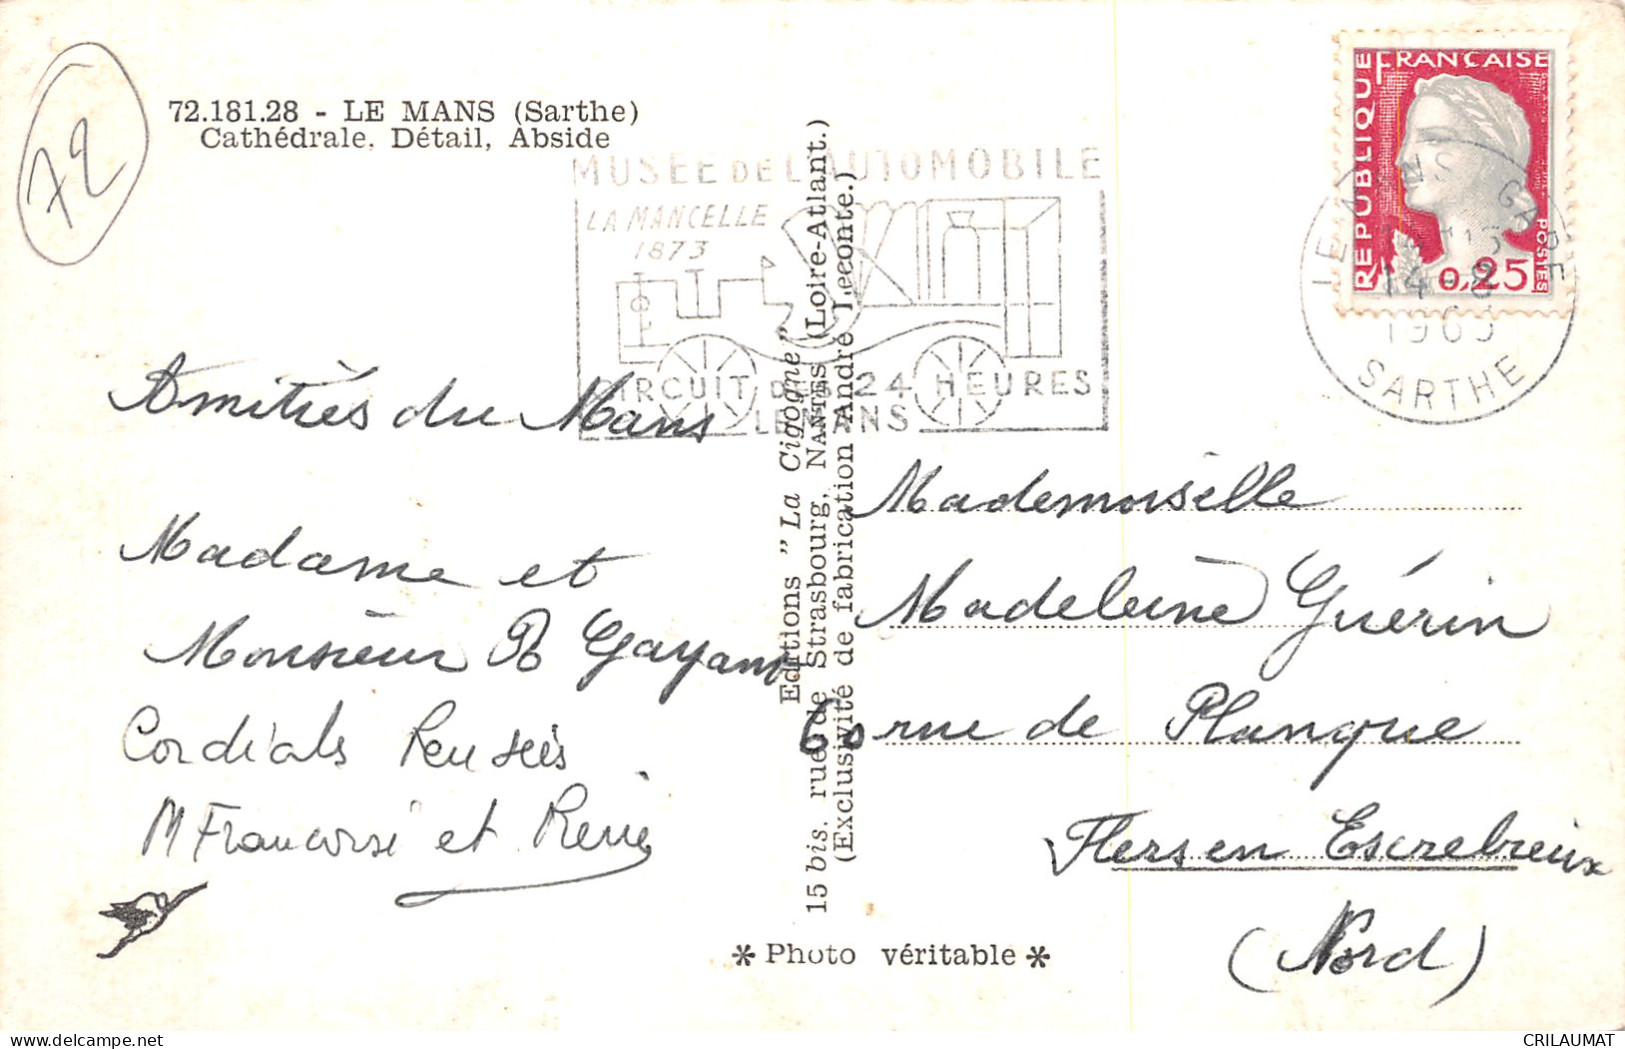 72
72.181.28 - LE MANS (Sarthe)
Cathédrale. Détail, Abside
MUSEE DE L'AUTOMOBILE
LA MANCELLE
1873
CIRCUIT DES 24 HEURES
LE MANS
REPUBLIQUE FRANÇAISE
POSTES
0,25
LE MANS GARE
14-8
SARTHE
Amitiés du Mans
Madame et
Monsieur R Gayant
Cordials Pensées
M Francoise et René
Editions "La Cigogne"
15 bis, rue de Strasbourg, NANTES (Loire-Atlant.)
(Exclusivité de fabrication André Leconte.)
* Photo véritable *
Mademoiselle
Madeleine Guérin
60 rue de Planque
Flers en Escrebieux
(Nord)
CRILAUMAT